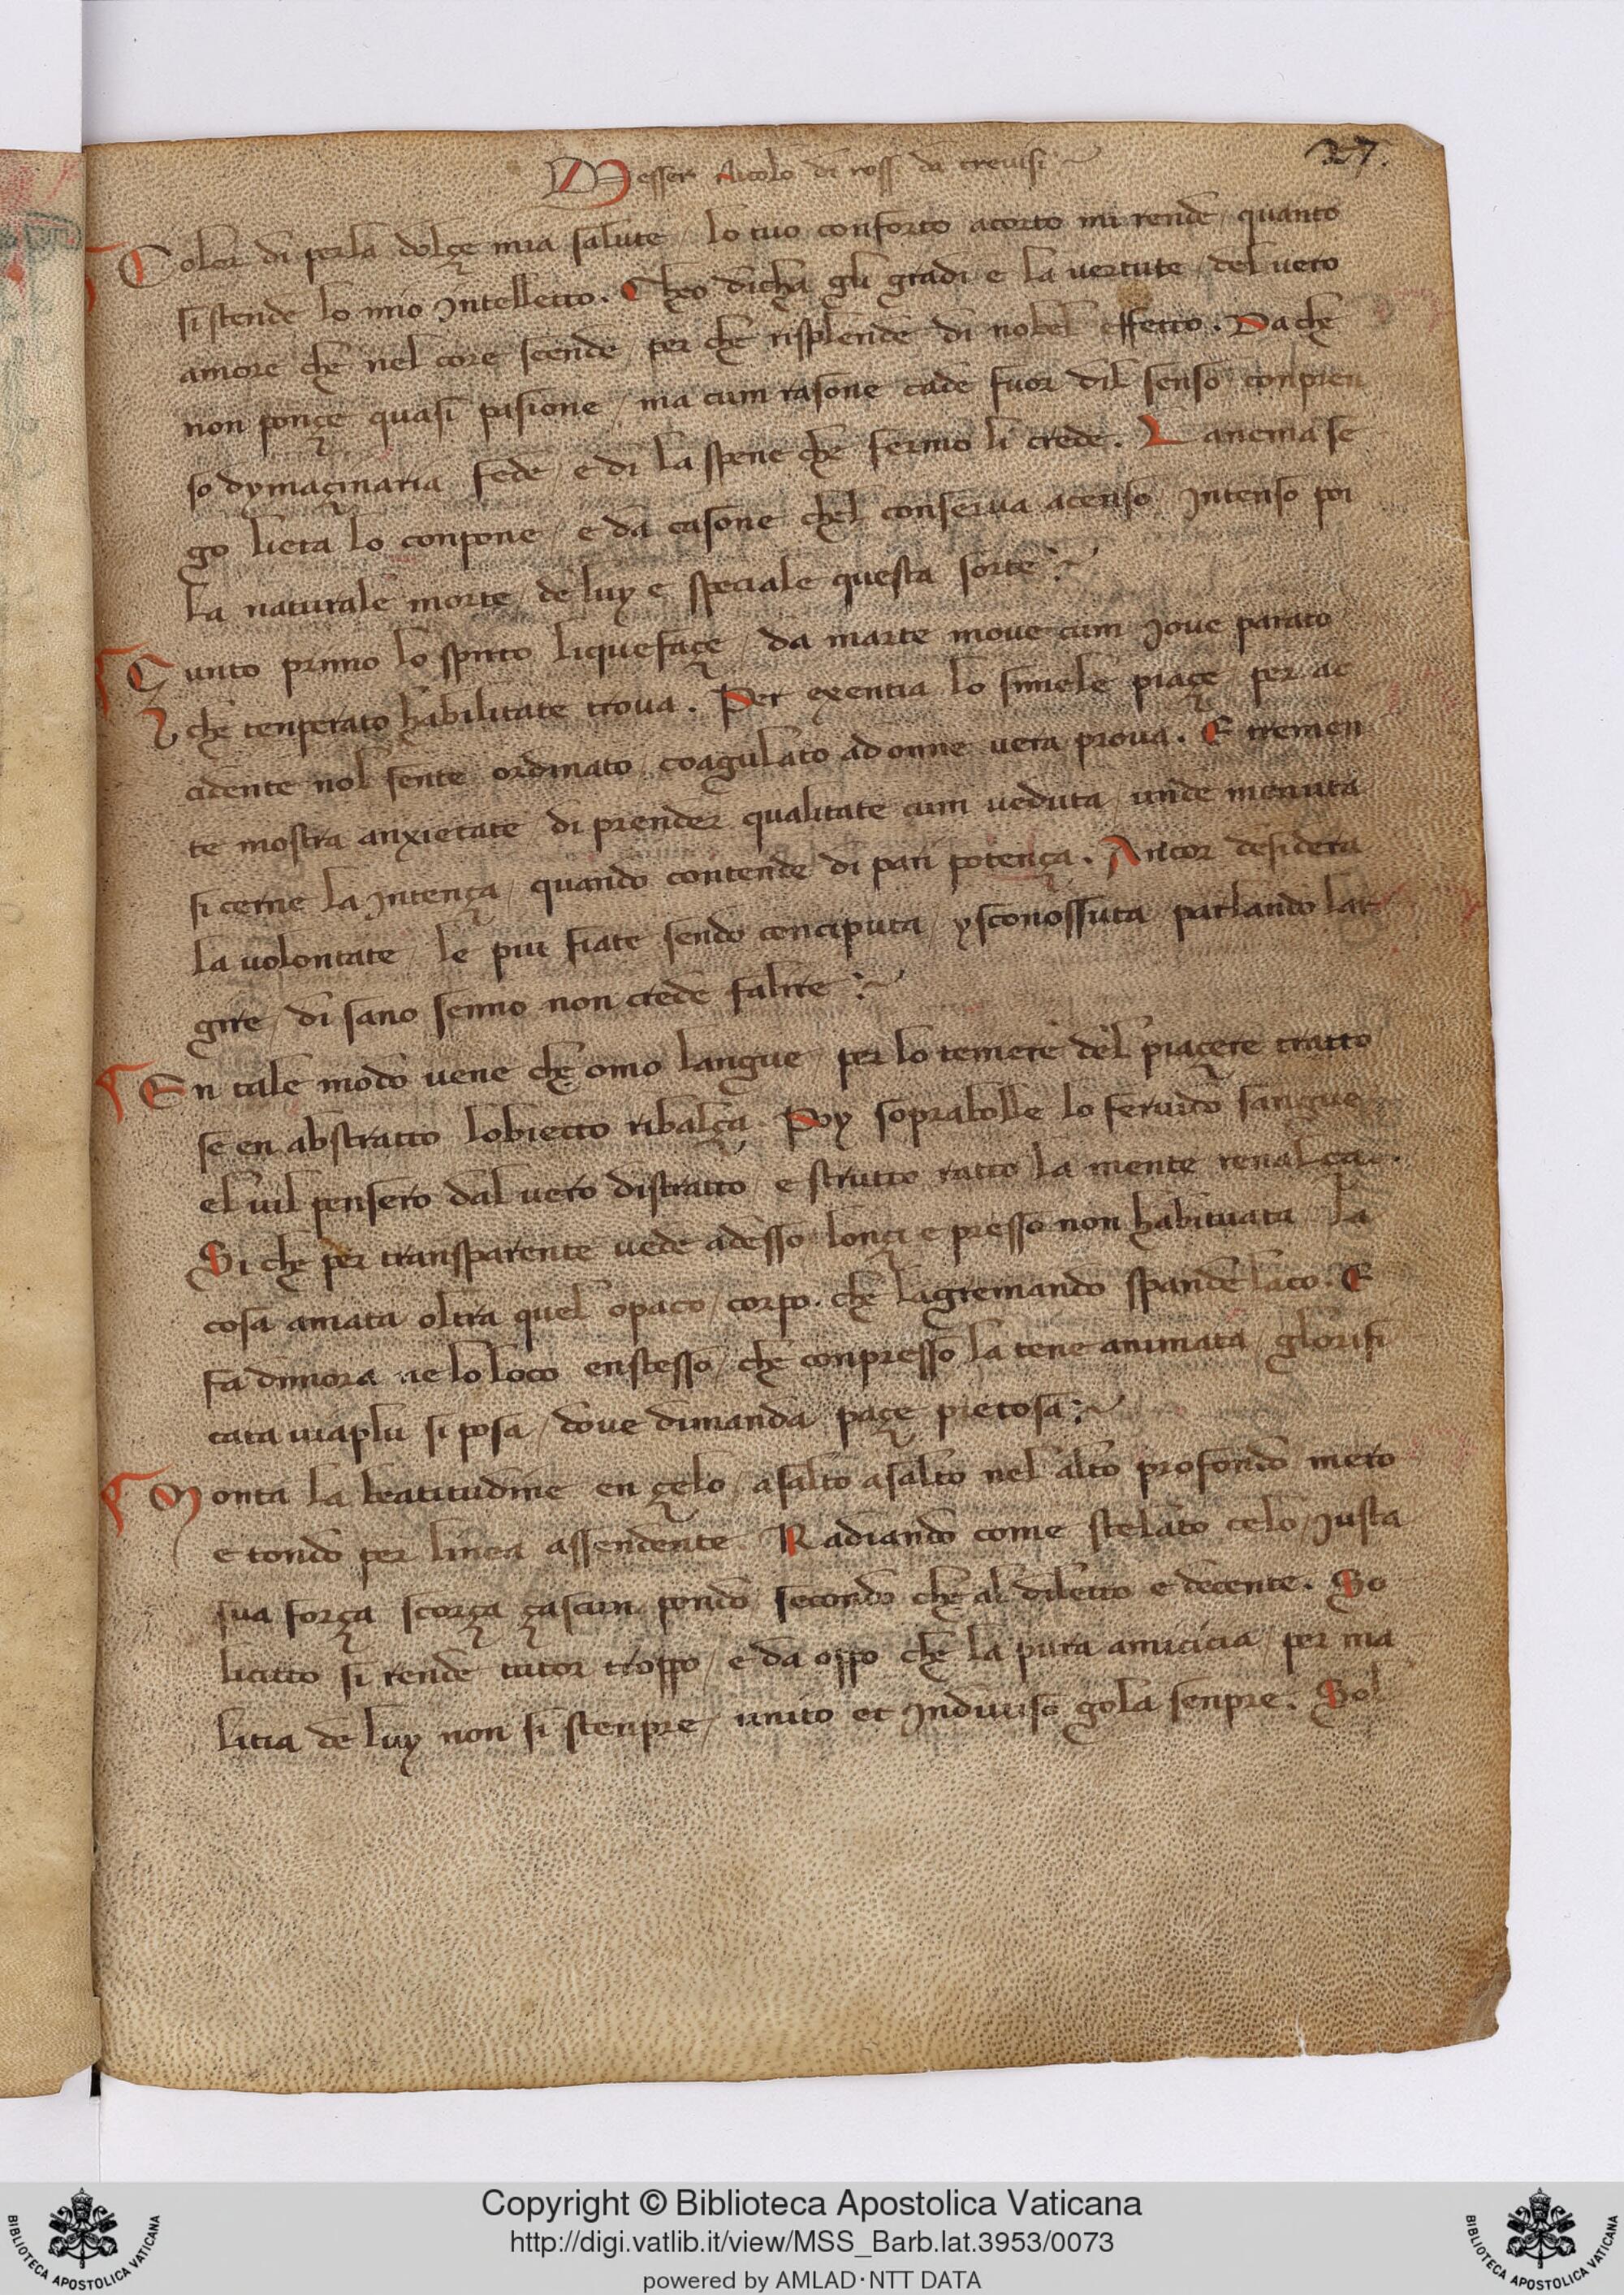 27.
Messer Nicolo di rossi da trevisi
Color di perla dolçe mia salute / lo tuo conforto acorto mi rende / quanto
si stende lo mio Intelletto. Cheo dicha gli gradi e la vertute / del vero
amore che nel core scende / per che risplende di nobel effetto. Da che
non ponçe quasi pasione / ma cum rasone cade fuor dil senso / conpren
so dymaçinaria fede / e di la spene che fermo li crede. Lanema se
go lieta lo conpone / e da casone chel conserva acenso / Intenso poi
la naturale morte / de luy e speciale questa sorte
Cunto primo lo spirito liquefaçe / da marte move cum Jove parato /
che tenperato habilitate trova. Per exentia lo simele piaçe / per ac
cidente nol sente ordinato / coagulato ad onne vera prova. E tremen
te mostra anxietate di prender qualitate cum veduta / unde menuta
si cerne la Intença / quando contende di pari potença. Ancor desidera
la volontate / le piu fiate sendo cenciputa / ysconossuta parlando lar
gire / di sano senno non crede falire
En tale modo vene che omo langue per lo temere del piaçere tratto
se en abstratto lobietto ribalça. Poy soprabolle lo fervido sangue
el vil pensero dal vero distratto / e strutto ratto la mente renalça.
Si che per transparente vede adesso lonçi e presso non habituata / la
cosa amata oltra quel opaco / corpo. che lagremando spande laco. E
fa dimora ne lo loco enstesso / che conpresso la tene animata / glorifi
cata viaplu si posa / dove dimanda paçe pietosa
Monta la beatitudine en çelo / asalto asalto nel alto profondo mero
e tondo per linea assendente. Radiando come stelato celo / Justa
sua força scorça çascun pondo / secondo che al diletto e decente. So
licitto si rende tutor troppo / e da oppo che la pura amicicia / per ma
litia de luy non si stenpre / unito et Indiviso gola senpre. Sol
Copyright © Biblioteca Apostolica Vaticana
http://digi.vatlib.it/view/MSS_Barb.lat.3953/0073
powered by AMLAD·NTT DATA
BIBLIOTECA APOSTOLICA VATICANA
BIBLIOTECA APOSTOLICA VATICANA